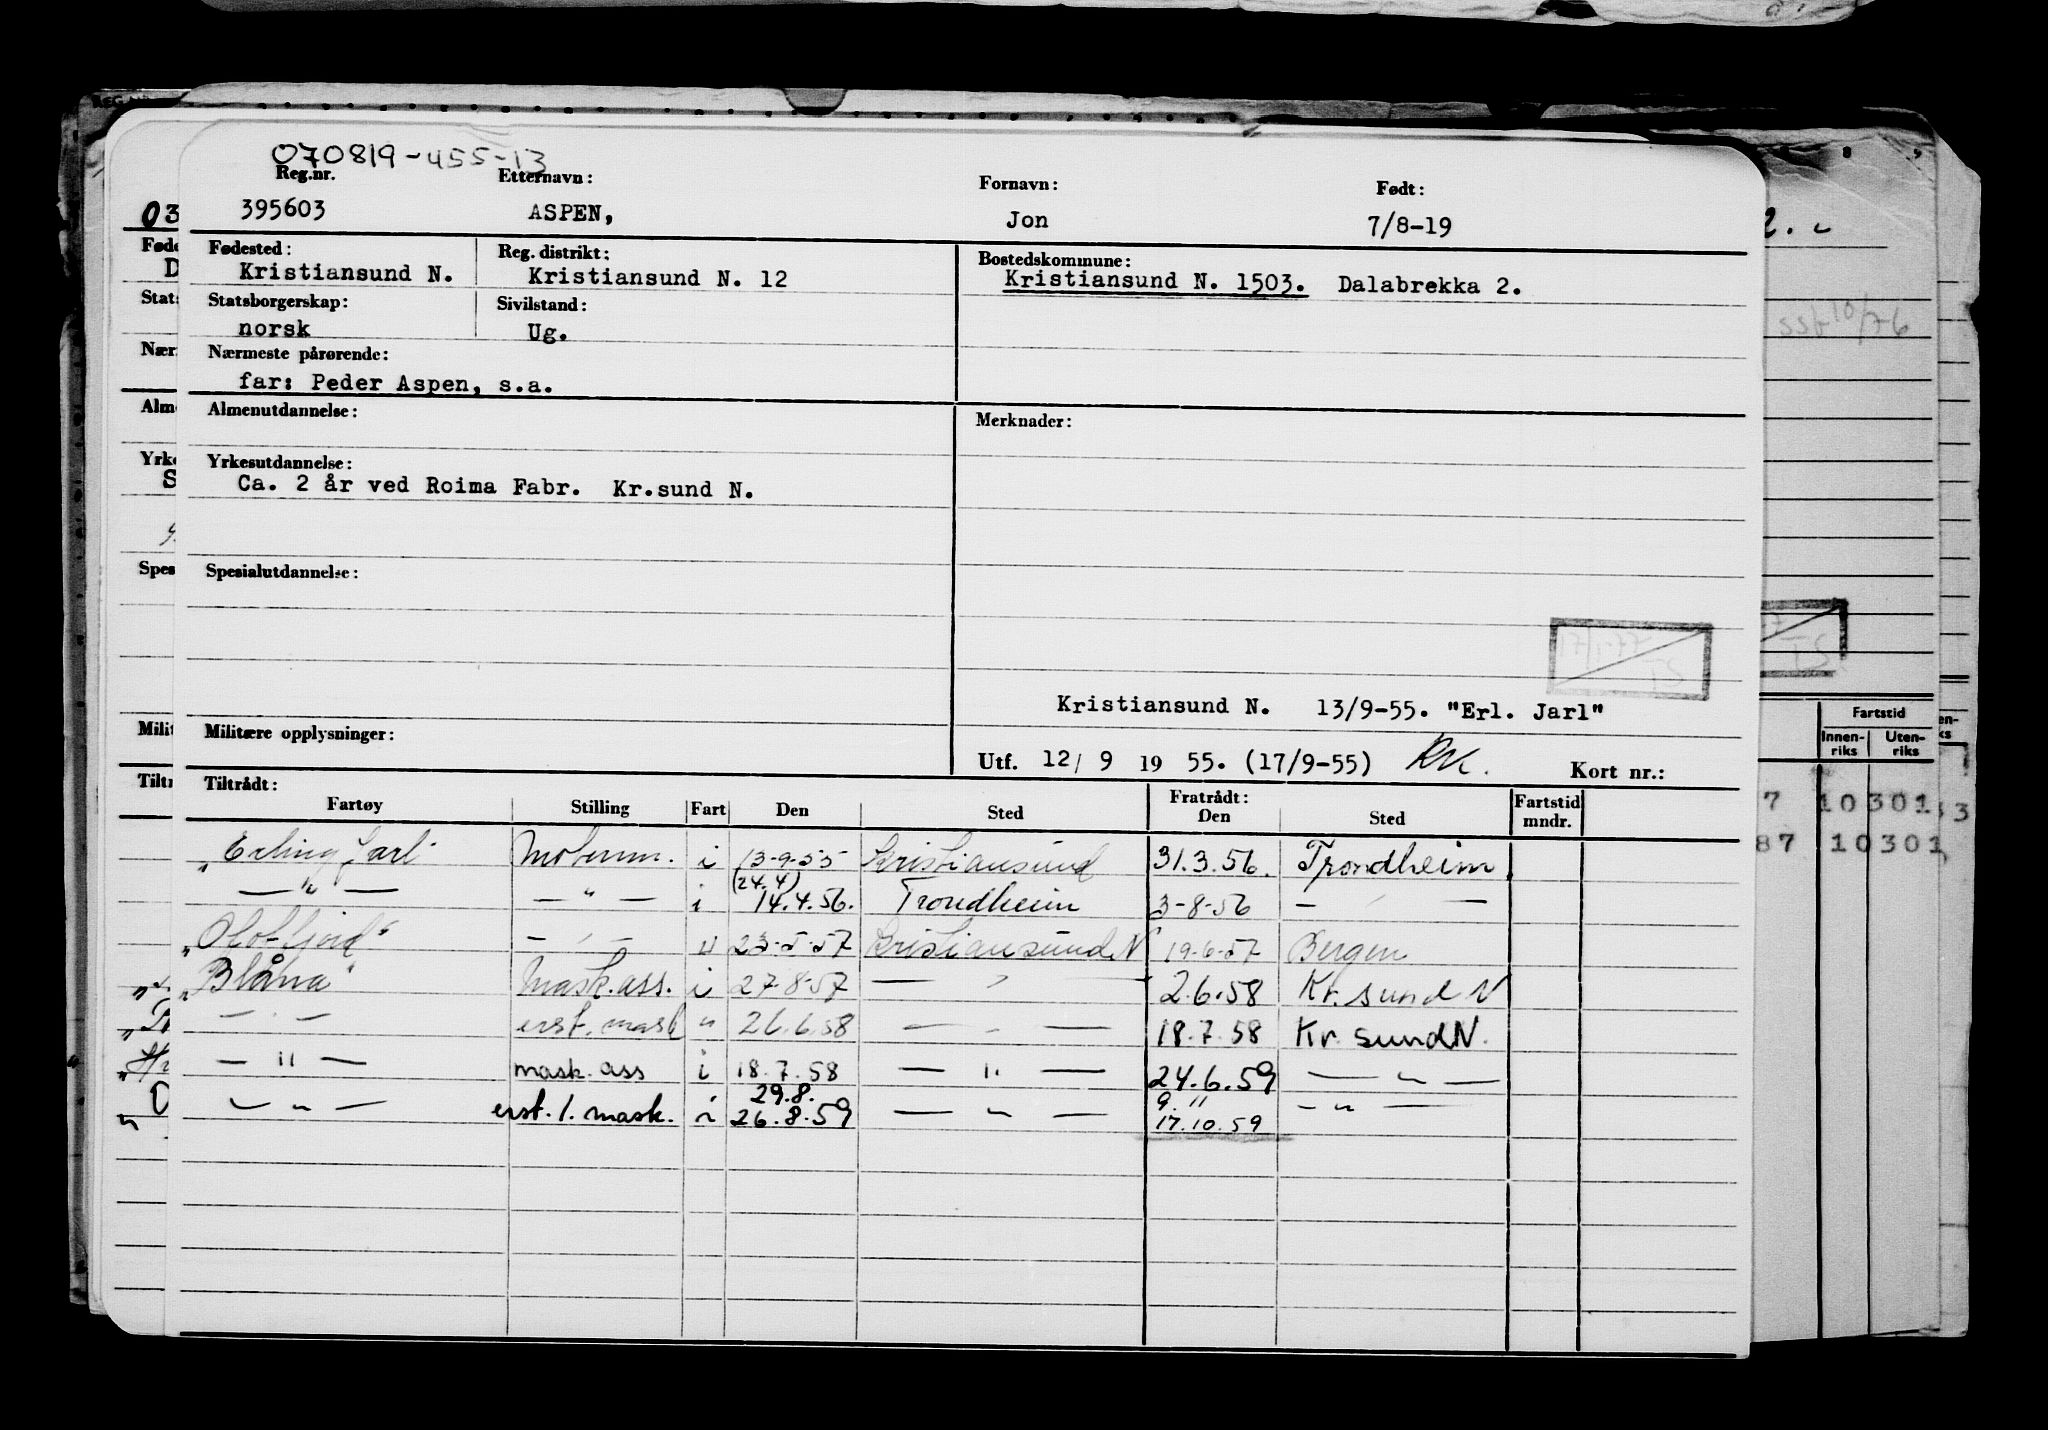 070819-455-13
Reg.nr. Etternavn: Fornavn: Født:
395603 ASPEN, Jon 7/8-19
Fødested: Reg. distrikt: Bostedskommune:
Kristiansund N. Kristiansund N. 12 Kristiansund N. 1503. Dalabrekka 2.
Statsborgerskap: Sivilstand:
norsk Ug.
Nærmeste pårørende:
far: Peder Aspen, s.a.
Almenutdannelse: Merknader:
Yrkesutdannelse:
Ca. 2 år ved Roima Fabr. Kr.sund N.
Spesialutdannelse:
17/1-77
TS
Kristiansund N. 13/9-55. "Erl. Jarl"
Militære opplysninger:
Utf. 12/ 9 19 55. (17/9-55) Kort nr.:
Tiltrådt: Fratrådt:
Fartøy Stilling Fart Den Sted Den Sted Fartstid mndr.
"Erling Jarl" Motorm. i 13-9-55 Kristiansund 31.3.56. Trondheim
(24.4)
— " — — " — i 14.4.56. Trondheim 3-8-56 — " —
— " — 23-5-57 Kristiansund N 19-6-57 Bergen
"Blåna" Mask.ass. i 27-8-57 — " — 2.6.58 Kr.sund N
— " — erst. mask " 26.6.58 — " — 18.7.58 Kr.sund N.
— " — mask. ass i 18.7.58 — " — 24.6.59 — " —
29.8. 9. 11
— " — erst. 1. mask. i 26.8.59 — " — 17.10.59 — " —
Fartstid
Innen-riks Uten-riks
7 10301
87 10301